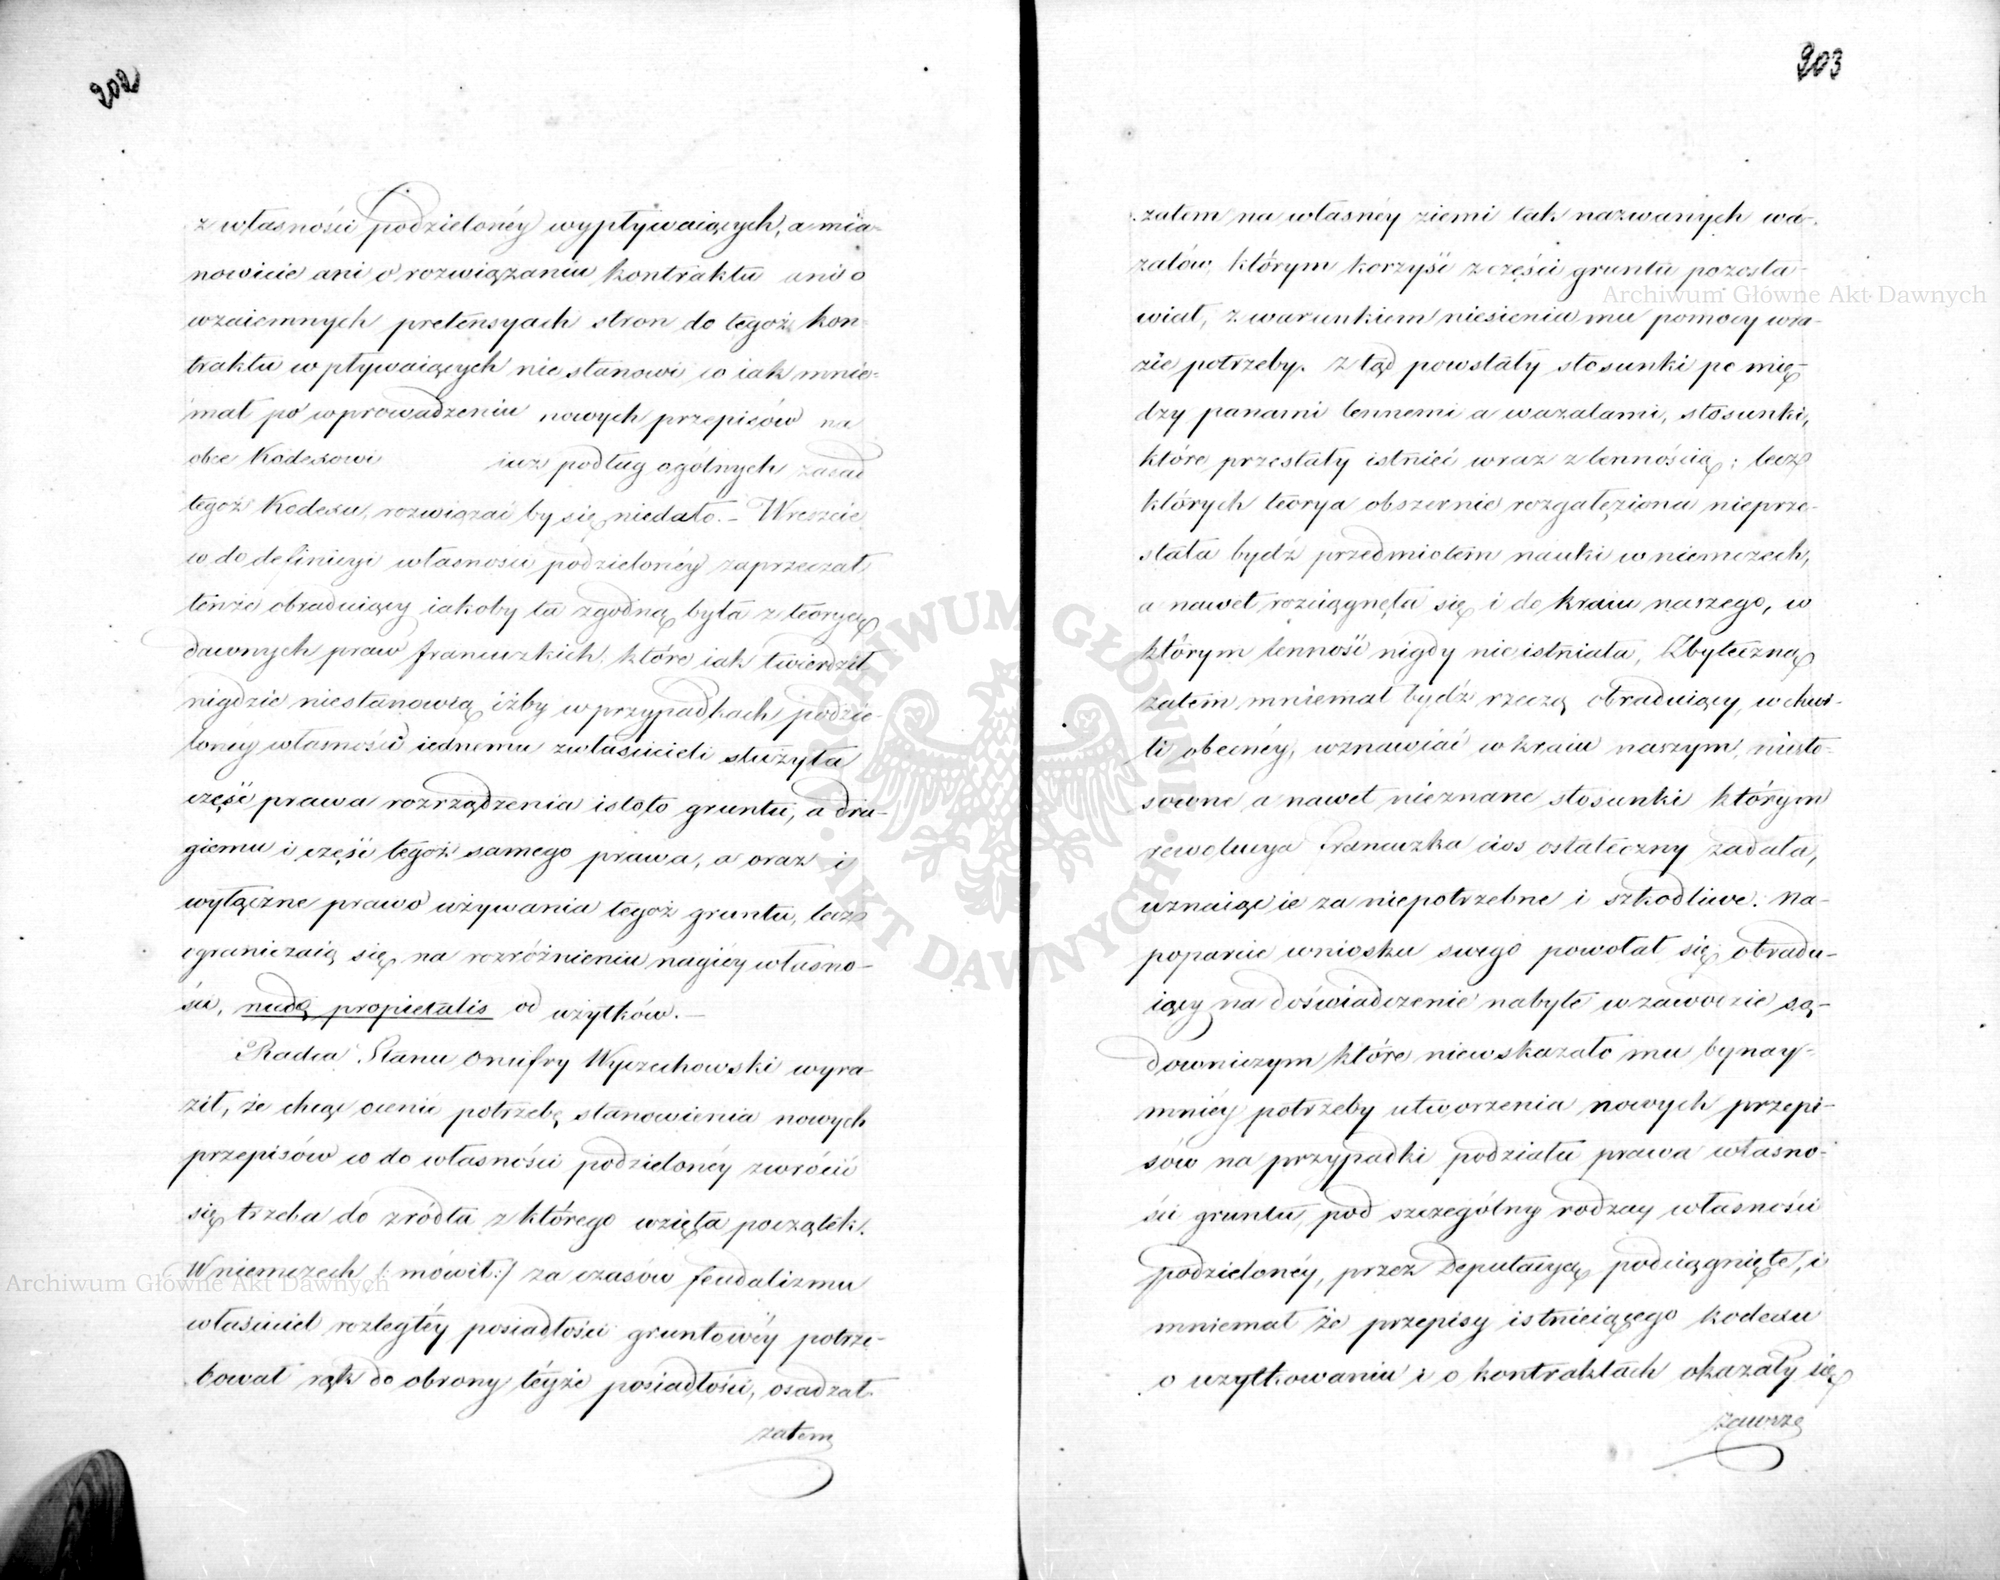 202
z własności podzielonéy wypływaiących, a mia-
nowicie ani o rozwiązaniu kontraktu ani o
wzaiemnych pretensyach stron do tegoż kon-
traktu wpływaiących nie stanowi co iak mnie-
mał po wprowadzeniu nowych przepisów na
obce Kodexowi iuż podług ogólnych zasad
tegoż Kodexu, rozwiązać by się niedało. – Wreszcie
co do definicyi własności podzielonéy zaprzeczał
tenże obraduiący iakoby ta zgodną była z teoryą
dawnych praw francuzkich, które iak twierdził
nigdzie niestanowią iżby w przypadkach podzie-
loney własności iednemu zwłaścicieli służyła
część prawa rozrządzenia istoto gruntu, a dru-
giemu i część tegoż samego prawa, a oraz i
wyłączne prawo używania tegoż gruntu, lecz
ograniczaią się na rozróżnieniu nagiéy własno-
ści, nudą proprietatis od użytków. –
Radca Stanu Onufry Wyczechowski wyra-
ził, że chcąc ocenić potrzebę stanowienia nowych
przepisów co do własności podzielonéy zwrócić
się trzeba do zródła z którego wzięła początek.
W niemczech /: mówił :/ za czasów feudalizmu
właściciel rozległéy posiadłości gruntowéy potrze-
bował rąk do obrony téyże posiadłości, osadzał
zatem
203
zatem na własnéy ziemi tak nazwanych wa-
zalów, którym korzyść z części gruntu pozosta-
wiał, z warunkiem niesienia mu pomocy wra-
zie potrzeby. Ztąd powstały stosunki po mię-
dzy panami lennemi a wazalami, stosunki,
które przestały istnieć wraz z lennością; lecz
których teorya obszernie rozgałęziona nieprze-
stała bydź przedmiotem nauki w niemczech,
a nawet rozciągnęła się i do kraiu naszego, w
którym lenność nigdy nie istniała, Zbyteczną
zatem mniemał bydź rzeczą obraduiący, w chwi-
li obecnéy, wznawiać w kraiu naszym, niesto-
sowne a nawet nieznane stosunki którym
rewolucya Francuzka cios ostateczny zadała,
uznaiąc ie za niepotrzebne i szkodliwe. Na
poparcie wniosku swego powołał się obradu-
iący na doświadczenie nabyte w zawodzie są-
downiczym które niewskazało mu bynay-
mniéy potrzeby utworzenia nowych przepi-
sów na przypadki podziału prawa własno-
ści gruntu, pod szczególny rodzay własności
podzielonéy, przez Deputacyą podciągnięte, i
mniemał że przepisy istnieiącego kodexu
o użytkowaniu i o kontraktach okazały się
zawsze
Archiwum Główne Akt Dawnych
Archiwum Główne Akt Dawnych
ARCHIWUM GŁÓWNE AKT DAWNYCH